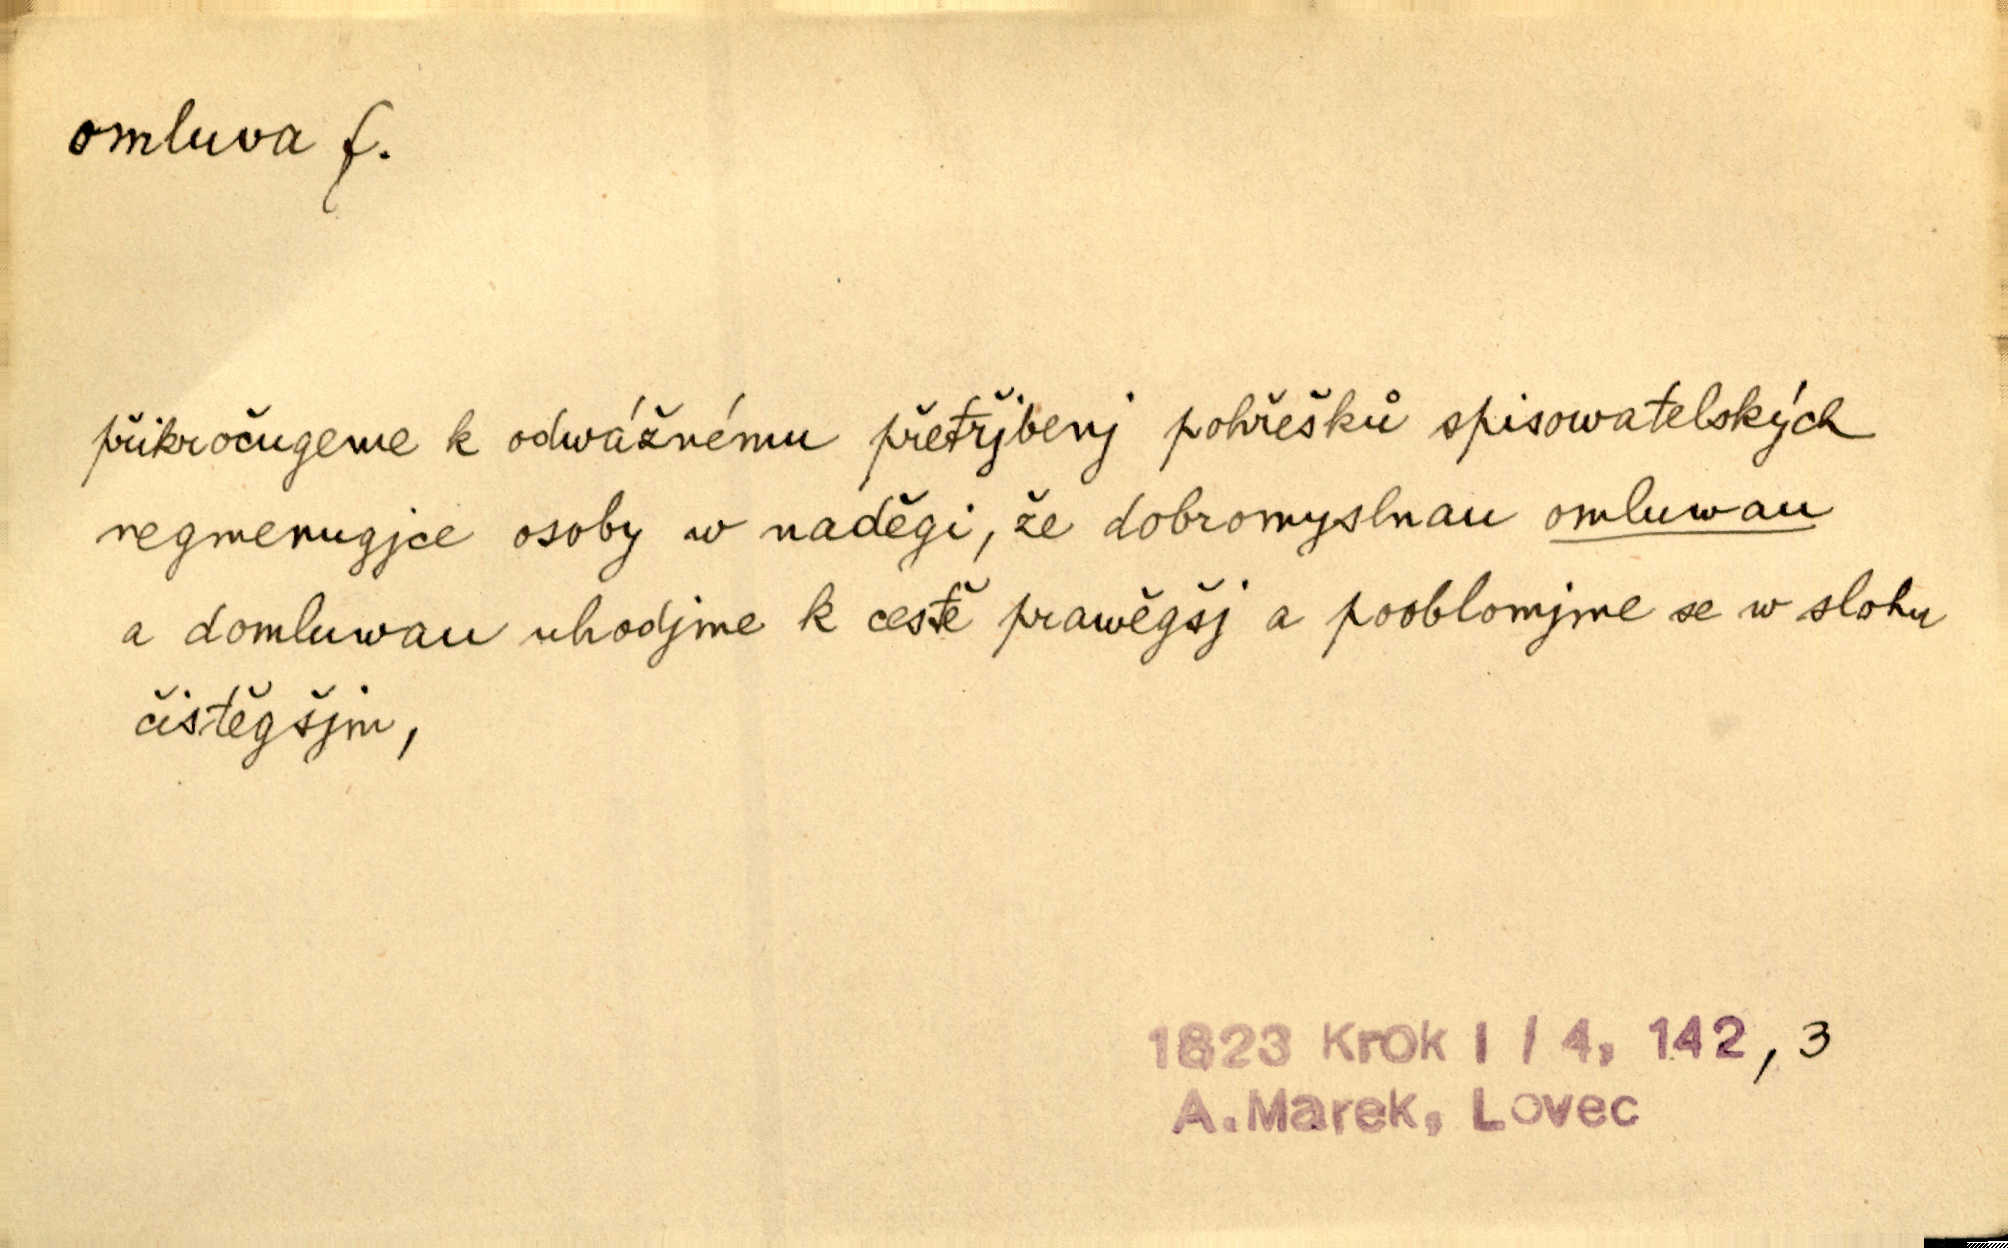 omluva f.
přikročugeme k odwážnému přetřjbenj pohřešků spisowatelských
negmenugjce osoby w naděgi, že dobromyslnau omluwau
a domluwau uhodjme k cestě prawěgšj a pooblomjme se w slohu
čistěgšjm,
1823 Krok I / 4, 142, 3
A. Marek, Lovec